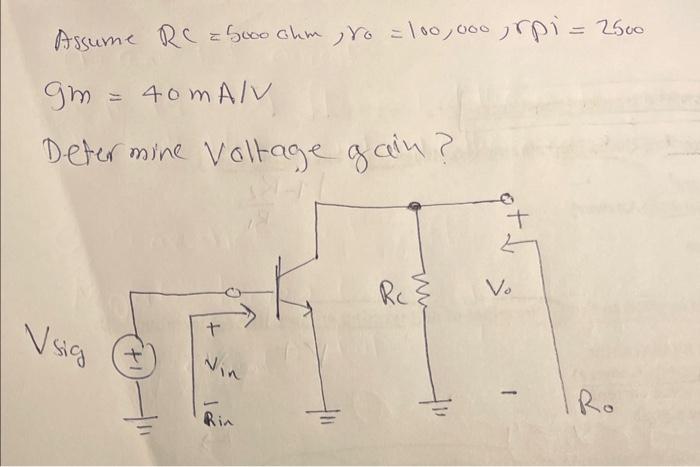 Assume RC = 5000 ohm, ro = 100,000, rpi = 2500
gm = 40 mA/V
Determine Voltage gain?
+
Rc
Vo
Vsig
+
+
Vin
-
-
Rin
Ro